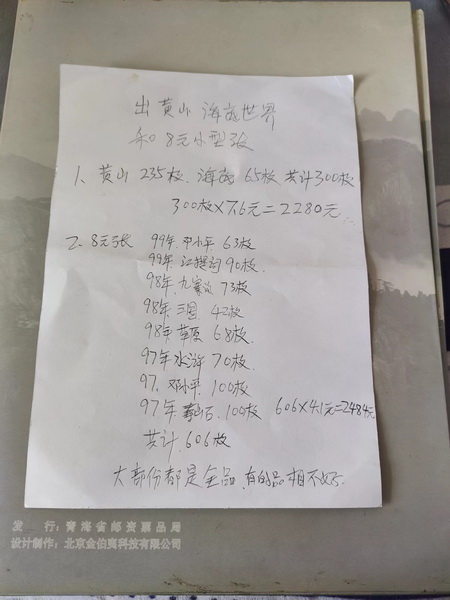 出黄山 海底世界
和8元小型张
1、黄山 235枚、海底 65枚 共计300枚
300枚×7.6元=2280元
2、8元张 99年.邓小平 63枚
99年.江提词 90枚.
98年.九寨沟 73枚
98年.三国. 42枚
98年.草原 68枚
97年水浒 70枚
97.邓小平.100枚
97年寿山石.100枚 606×4.1元=2484元
共计.606枚
大部份都是全品.有的品相不好.
发 行:青海省邮资票品局
设计制作:北京金伯爽科技有限公司